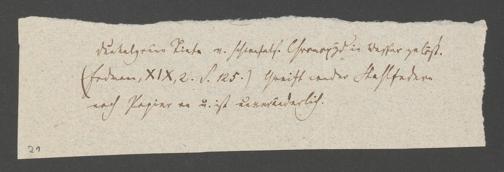 dunkelgrüne Tinte v. schwefels. Chromoxyd in Wasser gelöst.
(Erdmann, XIX, 2. S. 125.) Greift weder Stahlfedern
noch Papier an u. ist unveränderlich.
21